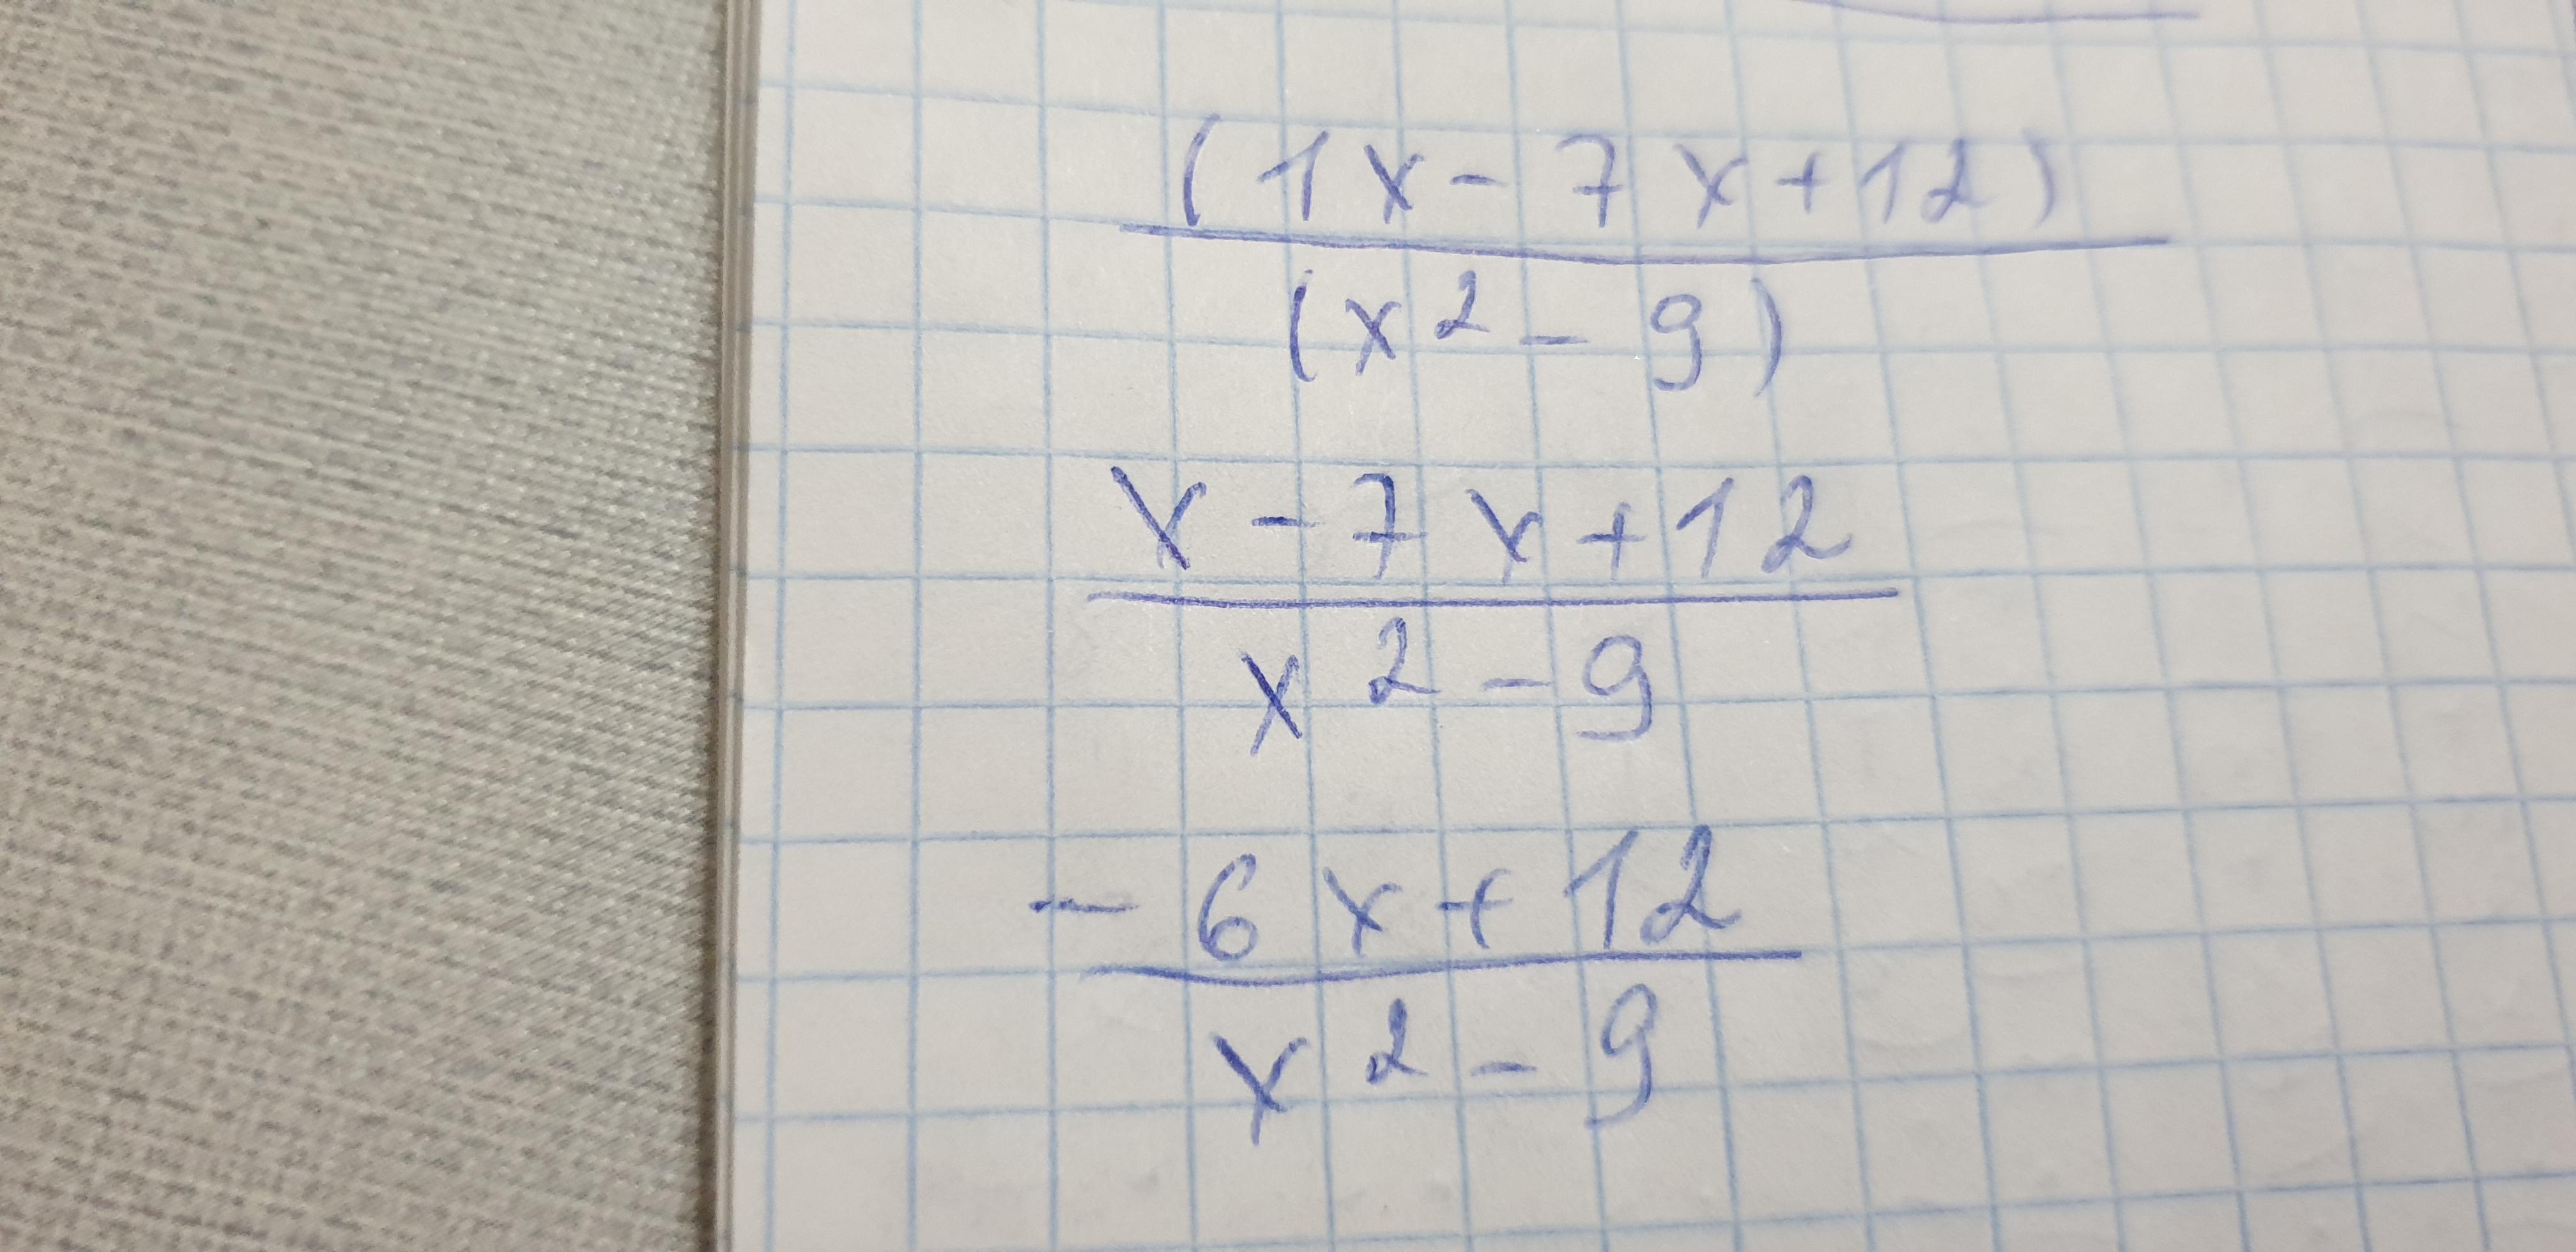 (1x - 7x + 12)
(x² - 9)
x - 7x + 12
x² - 9
- 6x + 12
x² - 9